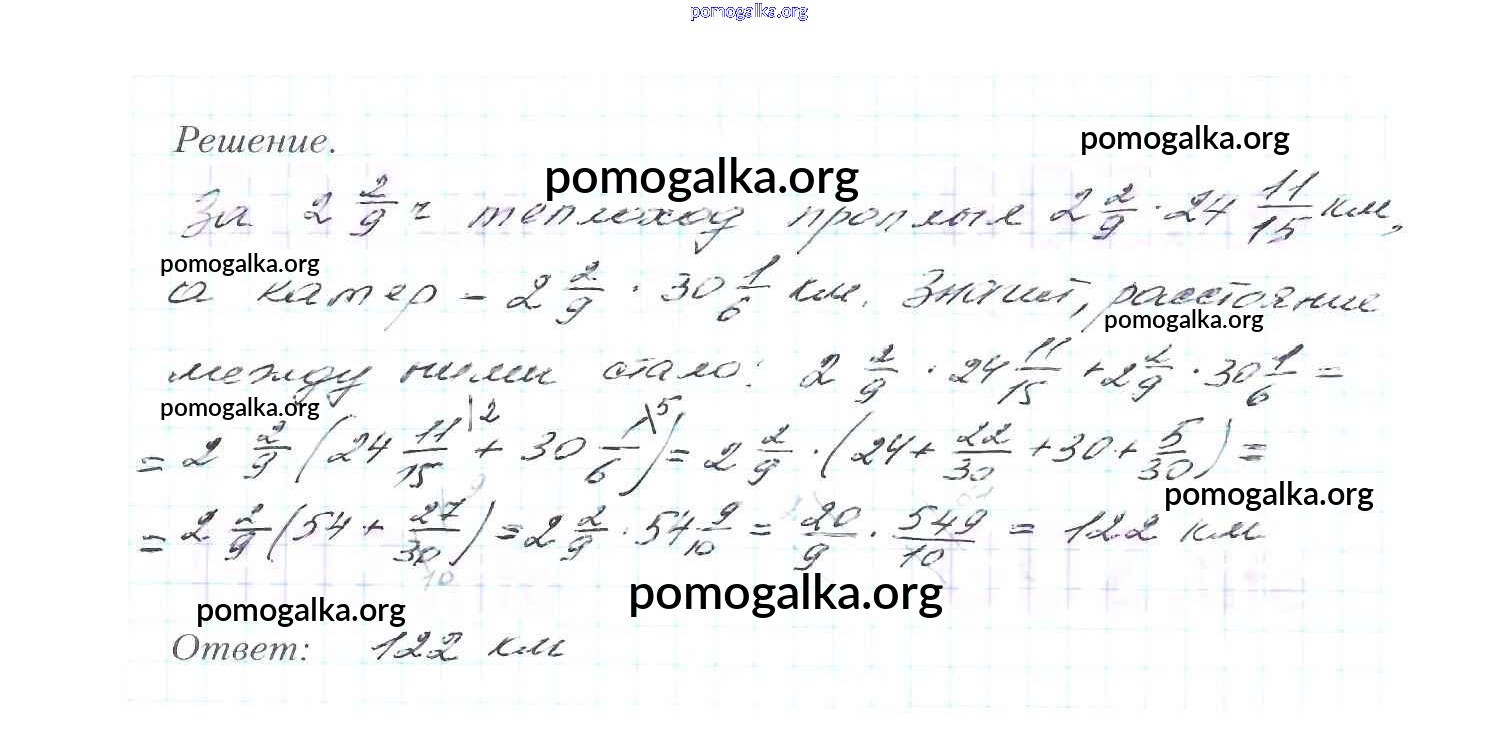 pomogalka.org
Решение.
pomogalka.org
pomogalka.org
За 2 2/9 ч теплоход проплыл 2 2/9 · 24 11/15 км,
pomogalka.org
а катер – 2 2/9 · 30 1/6 км. Значит, расстояние
pomogalka.org
между ними стало: 2 2/9 · 24 11/15 + 2 2/9 · 30 1/6 =
pomogalka.org
= 2 2/9 (24 11/15 |2 + 30 1/6 \5) = 2 2/9 · (24 + 22/30 + 30 + 5/30) =
pomogalka.org
= 2 2/9 (54 + 27/30) = 2 2/9 · 54 9/10 = 20/9 · 549/10 = 122 км
10
pomogalka.org
pomogalka.org
Ответ: 122 км